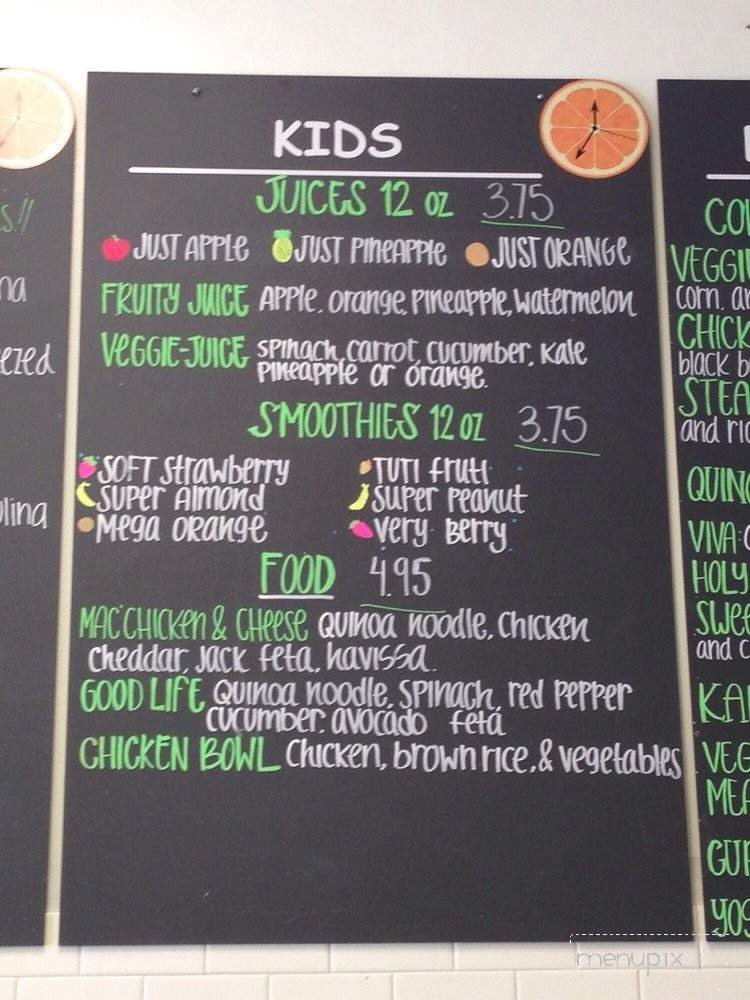 KIDS
JUICES 12 oz 3.75
JUST APPLE JUST PINEAPPLE JUST ORANGE
FRUITY JUICE APPLE. orange. PINEAPPLE, Watermelon
VEGGIE-JUICE SPINACH, Carrot, CUCUMBER, Kale
PINEAPPLE or orange.
SMOOTHIES 12 oz 3.75
SOFT Strawberry TUTI fruti
SUPER Almond SUPER PEANUT
MEGA ORANGE VERY BERRY
FOOD 4.95
MAC'CHICKEN & CHEESE QUINOA noodle, CHICKEN
Cheddar, Jack feta, havissa.
GOOD LIFE QUINOA noodle, SPINACH, red PEPPER
CUCUMBER. avocado feta
CHICKEN BOWL CHICKEN, brown rice, & vegetables
s!!
na
ezed
lina
corn. an
black b
and ric
QUINO
VIVA:
HOLY
and c
menupix